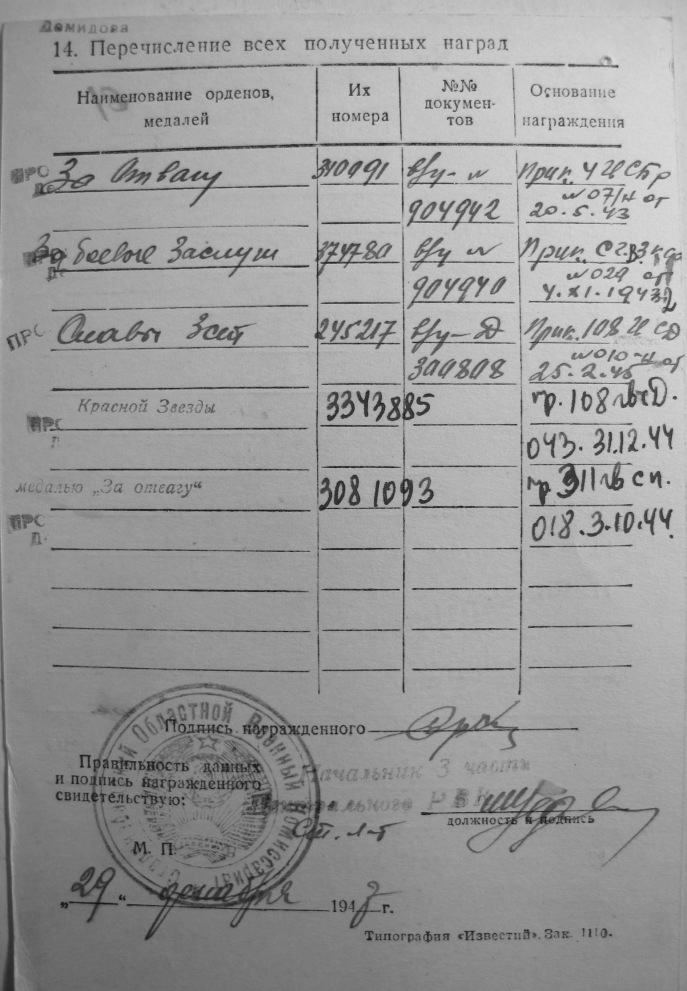 Демидова
14. Перечисление всех полученных наград
Наименование орденов, медалей
Их номера
№№ документов
Основание награждения
ПРО За Отвагу 310991 вру- № Прик. 4 ИСБр
904942 №07/н от 20.5.43
За боевые Заслуги 374780 вру №
904940 №029 от 4.XI.1943
ПРО Славы 3 ст 245217 вру-Д Прик. 108 СД
300808 №010-н от 25.2.45
Красной Звезды 3343885 пр. 108 гв сД.
ПРО 043. 31.12.44
медалью „За отвагу“ 3081093 пр 311 гв сп.
ПРО 018. 3.10.44.
Подпись награжденного
Правильность данных
и подпись награжденного
свидетельствую:
Начальник 3 части
РВК
Ст. л-т
должность и подпись
М. П.
Областной Военный Комиссариат
„29“ декабря 194 г.
Типография «Известий». Зак. 1110.